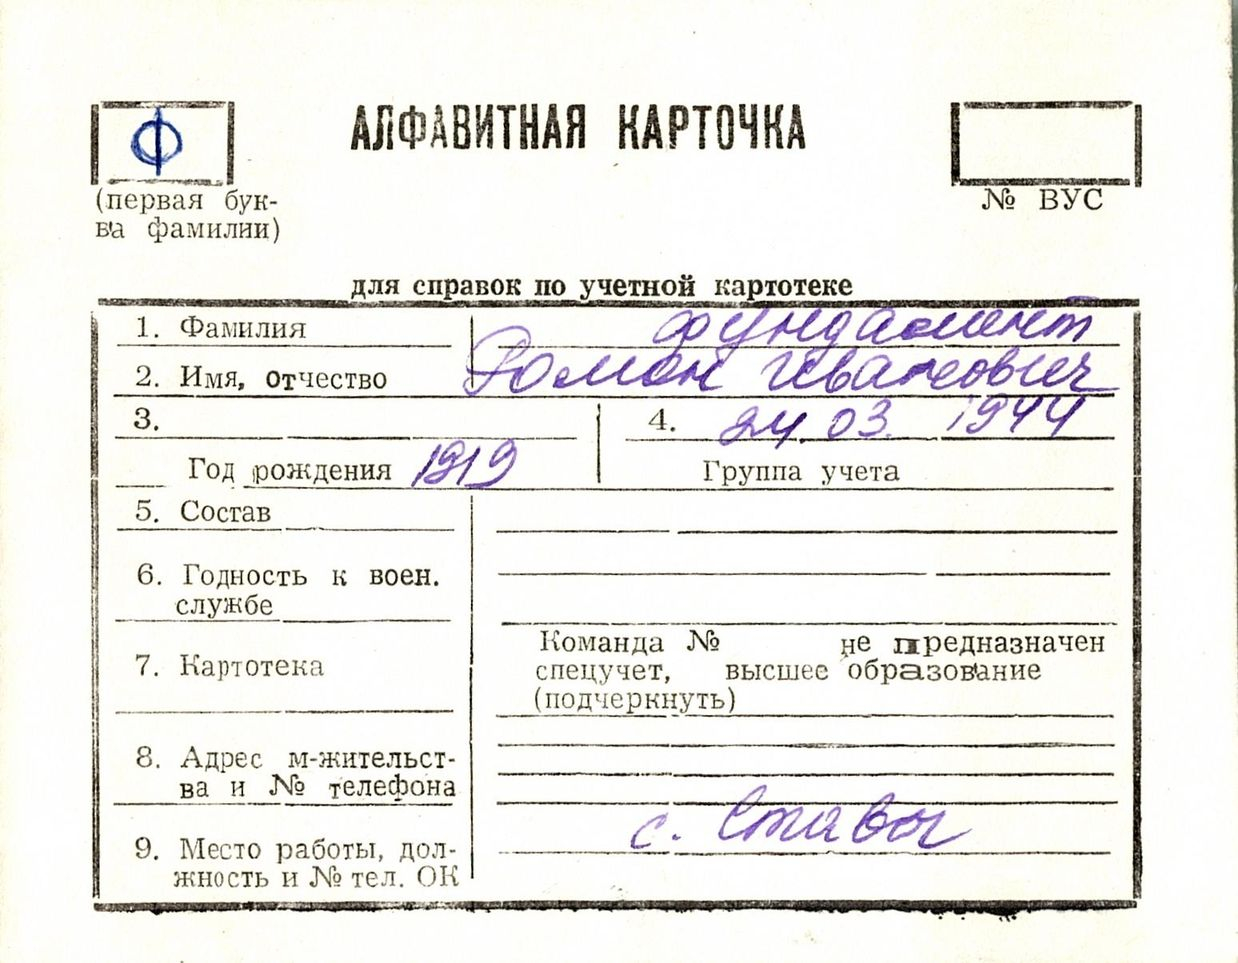 Ф
АЛФАВИТНАЯ КАРТОЧКА
(первая бук-
ва фамилии)
№ ВУС
для справок по учетной картотеке
1. Фамилия Фундамент
2. Имя, отчество Роман Иванович
3.
Год рождения 1919
4. 24.03. 1944
Группа учета
5. Состав
6. Годность к воен.
службе
7. Картотека
Команда № не предназначен
спецучет, высшее образование
(подчеркнуть)
8. Адрес м-жительст-
ва и № телефона
9. Место работы, дол-
жность и № тел. ОК
с. Ставы